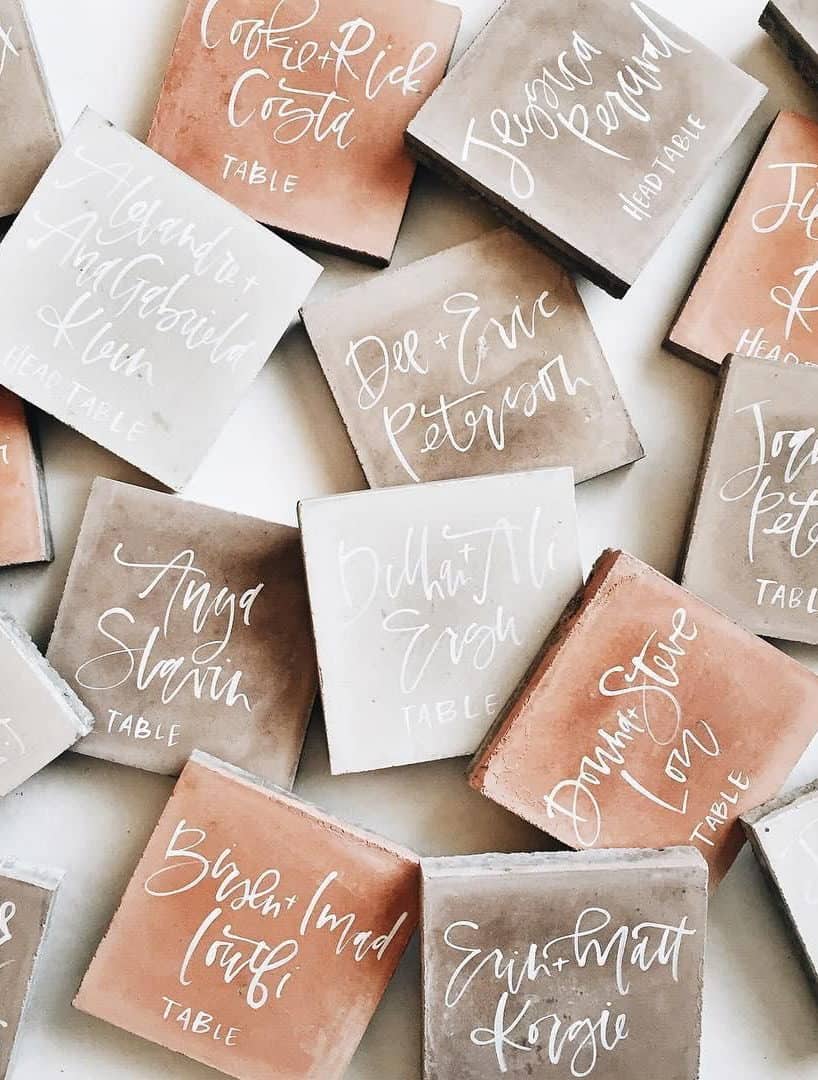 Cookie + Rick
Costa
TABLE
Jessica
Percival
HEAD TABLE
Alexandre +
AnaGabriela
Klein
HEAD TABLE
Dee + Eric
Peterson
HEAD
TABL
Anya
Slavin
TABLE
Ali
TABLE
Donna + Steve
Lou
TABLE
Birsen + Imad
Loutfi
TABLE
Erin + Matt
Korgie